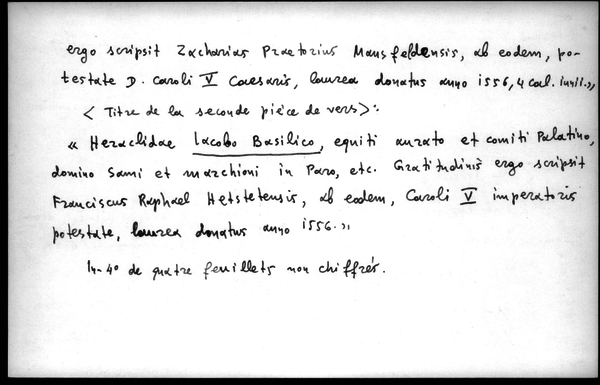 ergo scripsit Zacharias Praetorius Mansfeldensis, ab eodem, po-
testate D. Caroli V Caesaris, laurea donatus anno 1556, 4 cal. iunii.»
< Titre de la seconde pièce de vers>:
« Heraclidae Iacobo Basilico, equiti aurato et comiti Palatino,
domino Sami et marchioni in Paro, etc. Gratitudinis ergo scripsit
Franciscus Raphael Hetstetensis, ab eodem, Caroli V imperatoris
potestate, laurea donatus anno 1556.»
In-4° de quatre feuillets non chiffrés.